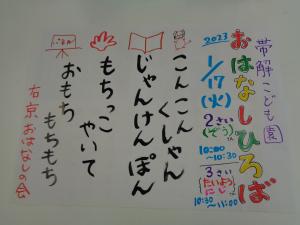 帯解こども園
おはなしひろば
2023
1/17(火)
2さい
(ぞう)
10:00
~10:30
3さい
(たいよう
にじ)
10:30
~11:00
こんこん
くしゃん
じゃんけんぽん
もちっこ
やいて
おもち
もちもち
右京おはなしの会